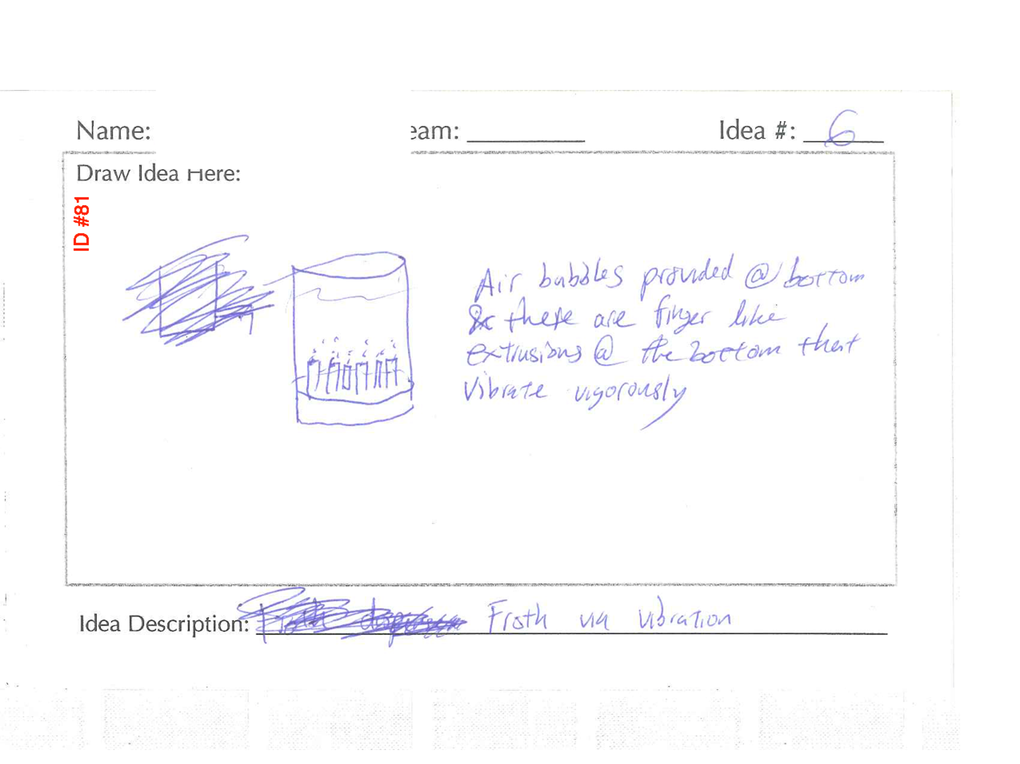 Name:
eam:
Idea #: 6
Draw Idea Here:
ID #81
Air bubbles provided @ bottom
& these are finger like
extrusions @ the bottom that
vibrate vigorously
Idea Description: Froth via vibration